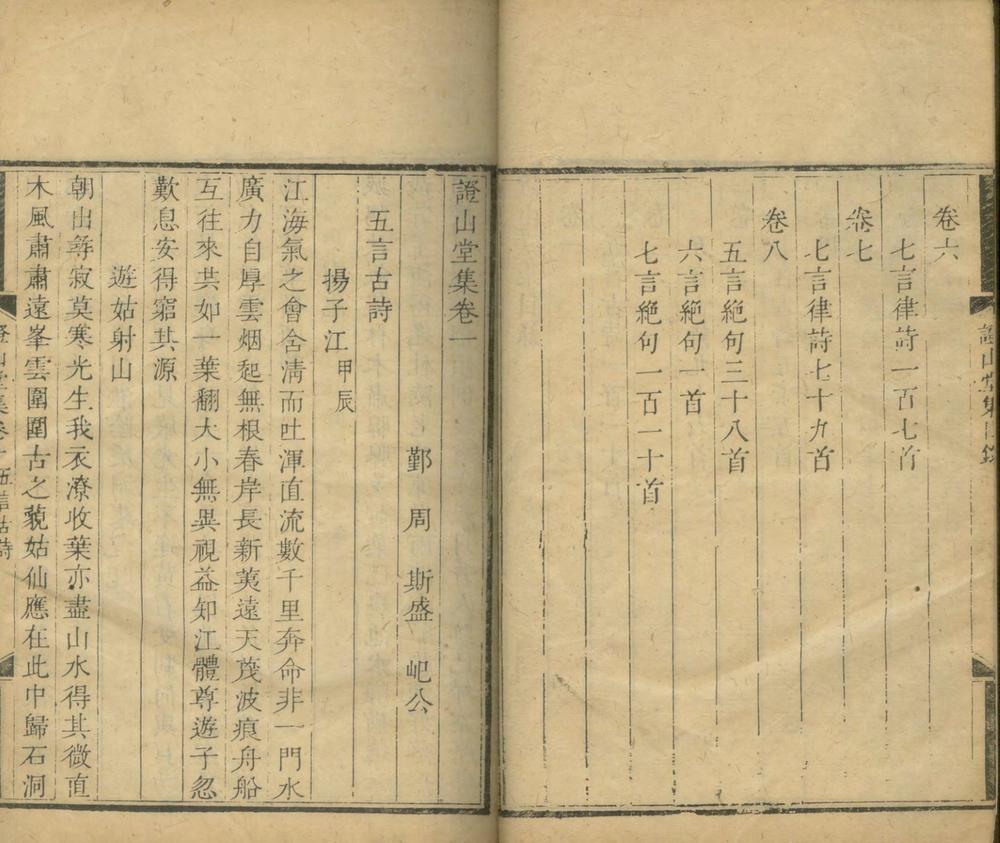 卷六
七言律詩一百七首
卷七
七言律詩七十九首
卷八
五言絶句三十八首
六言絶句一首
七言絶句一百一十首
證山堂集目錄
證山堂集卷一
鄞周斯盛屺公
五言古詩
揚子江甲辰
江海氣之會含清而吐渾直流數千里奔命非一門水
廣力自厚雲烟起無根春岸長新荑遠天茂波痕舟船
互往來共如一葉翻大小無異視益知江體尊遊子忽
歎息安得窮其源
遊姑射山
朝出篸寂莫寒光生我衣潦收葉亦盡山水得其微直
木風肅肅遠峯雲圍圍古之藐姑仙應在此中歸石洞
證山堂集卷一五言古詩